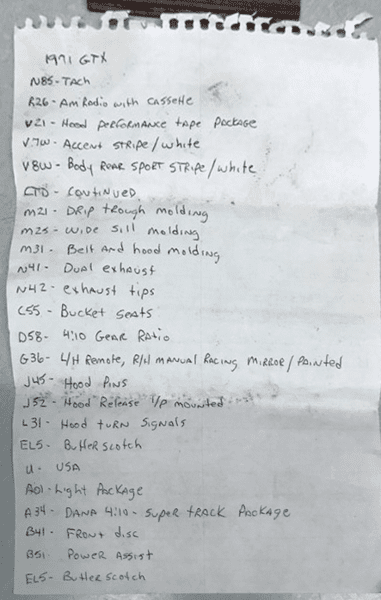 1971 GTX
N85 - TAch
R26 - Am Radio with Cassette
V21 - Hood performance tape package
V7W - Accent Stripe/white
V8W - Body Rear Sport Stripe/white
CTD - Continued
M21 - Drip trough molding
M25 - wide sill molding
M31 - Belt And hood molding
N41 - Dual exhaust
N42 - exhaust tips
C55 - Bucket Seats
D58 - 4:10 Gear Ratio
G36 - L/H Remote, R/H MANUAL Racing Mirror/Painted
J45 - Hood Pins
J52 - Hood Release I/P mounted
L31 - Hood turn Signals
EL5 - Butterscotch
U - USA
A01 - Light Package
A34 - DANA 4:10 - Super track Package
B41 - Front disc
B51 - Power Assist
EL5 - Butterscotch